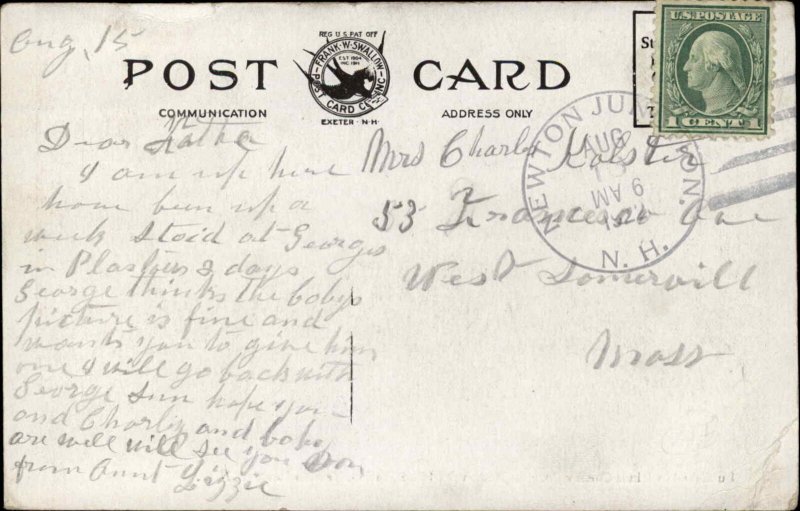 Aug, 15
POST CARD
REG U.S. PAT OFF
FRANK·W·SWALLOW
POST CARD CO. INC
EST 1904
INC 1911
EXETER·N·H·
COMMUNICATION
ADDRESS ONLY
U.S. POSTAGE
1 CENT 1
NEWTON JUNCTION.
AUG
15
9 AM
N. H.
Dear
I am up here
have been up a
week Staid at Georges
in 2 days
George thinks the babys
picture is fine and
wants you to give him
one I will go back with
George Sun hope you
and Charly and baby
are well will see you Soon
from Aunt Lizzie
Mrs Charly
53 Francesco Ave
West Somervill
Mass